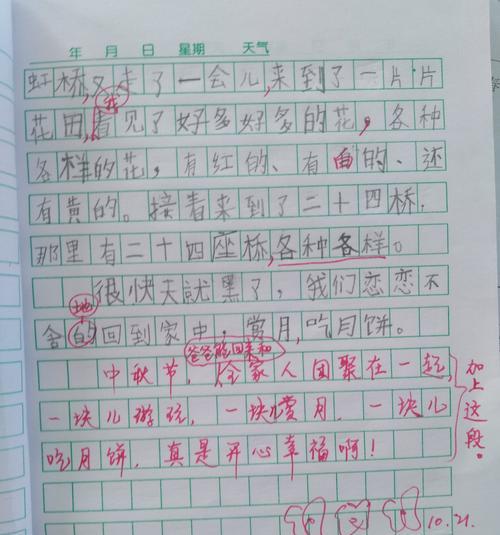 年 月 日 星期 天气
虹桥,又走了一会儿,来到了一片片
花田,看见了好多好多的花,各种
各样的花,有红的、有白的、还
有黄的。接着来到了二十四桥,
那里有二十四座桥,各种各样。
很快天就黑了,我们恋恋不
地
舍的回到家中,赏月,吃月饼。
爸爸能回来和
中秋节,全家人团聚在一起,
一块儿游玩,一块儿赏月,一块儿
吃月饼,真是开心幸福啊!
加上这段。
10.21.